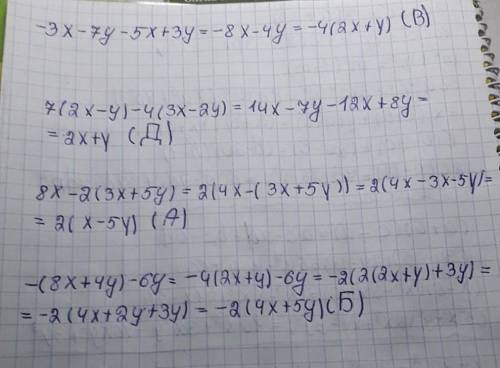 -3x-7y-5x+3y=-8x-4y=-4(2x+y) (В)
7(2x-y)-4(3x-2y)=14x-7y-12x+8y=
=2x+y (Д)
8x-2(3x+5y)=2(4x-(3x+5y))=2(4x-3x-5y)=
=2(x-5y) (А)
-(8x+4y)-6y=-4(2x+y)-6y=-2(2(2x+y)+3y)=
=-2(4x+2y+3y)=-2(4x+5y)(Б)